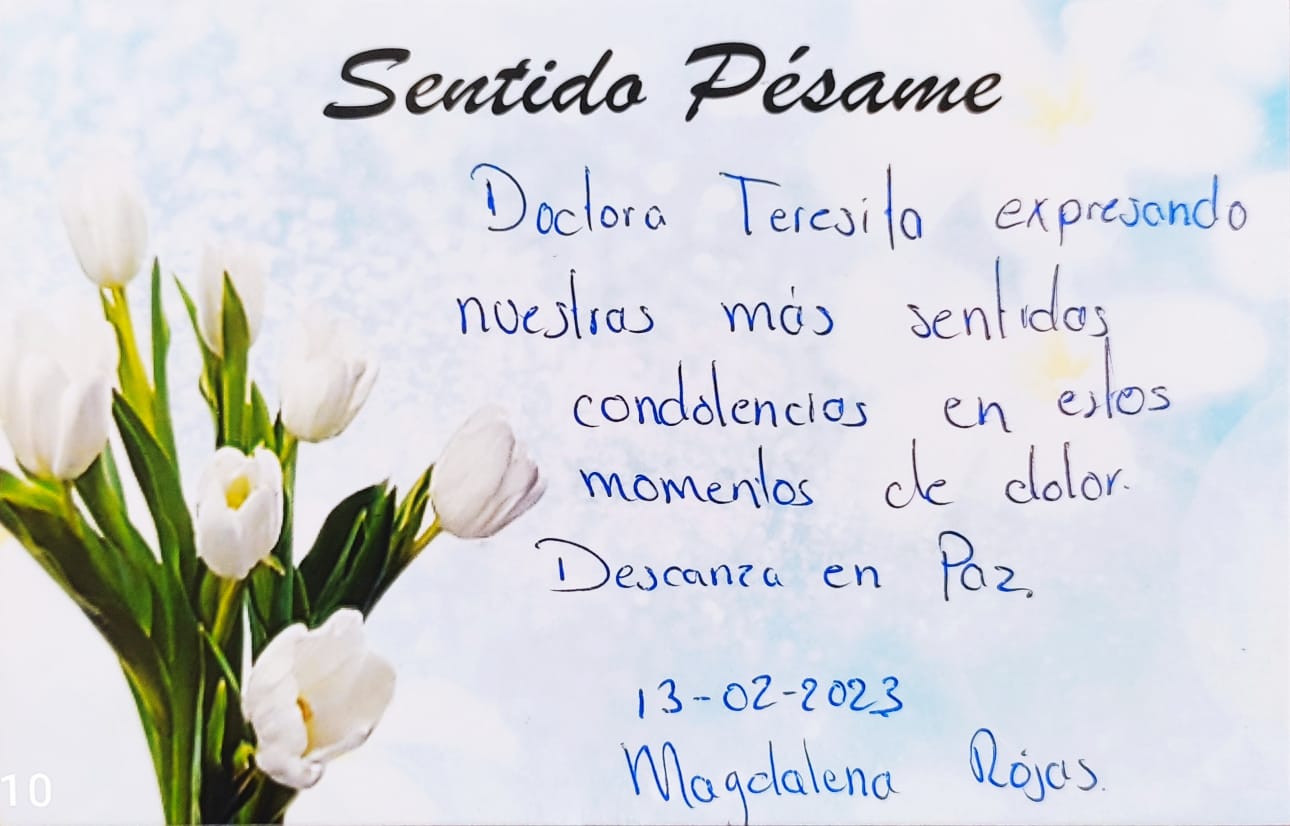 Sentido Pésame
Doctora Teresita expresando
nuestras más sentidas
condolencias en estos
momentos de dolor.
Descanza en Paz.
13-02-2023
Magdalena Rójas.
10